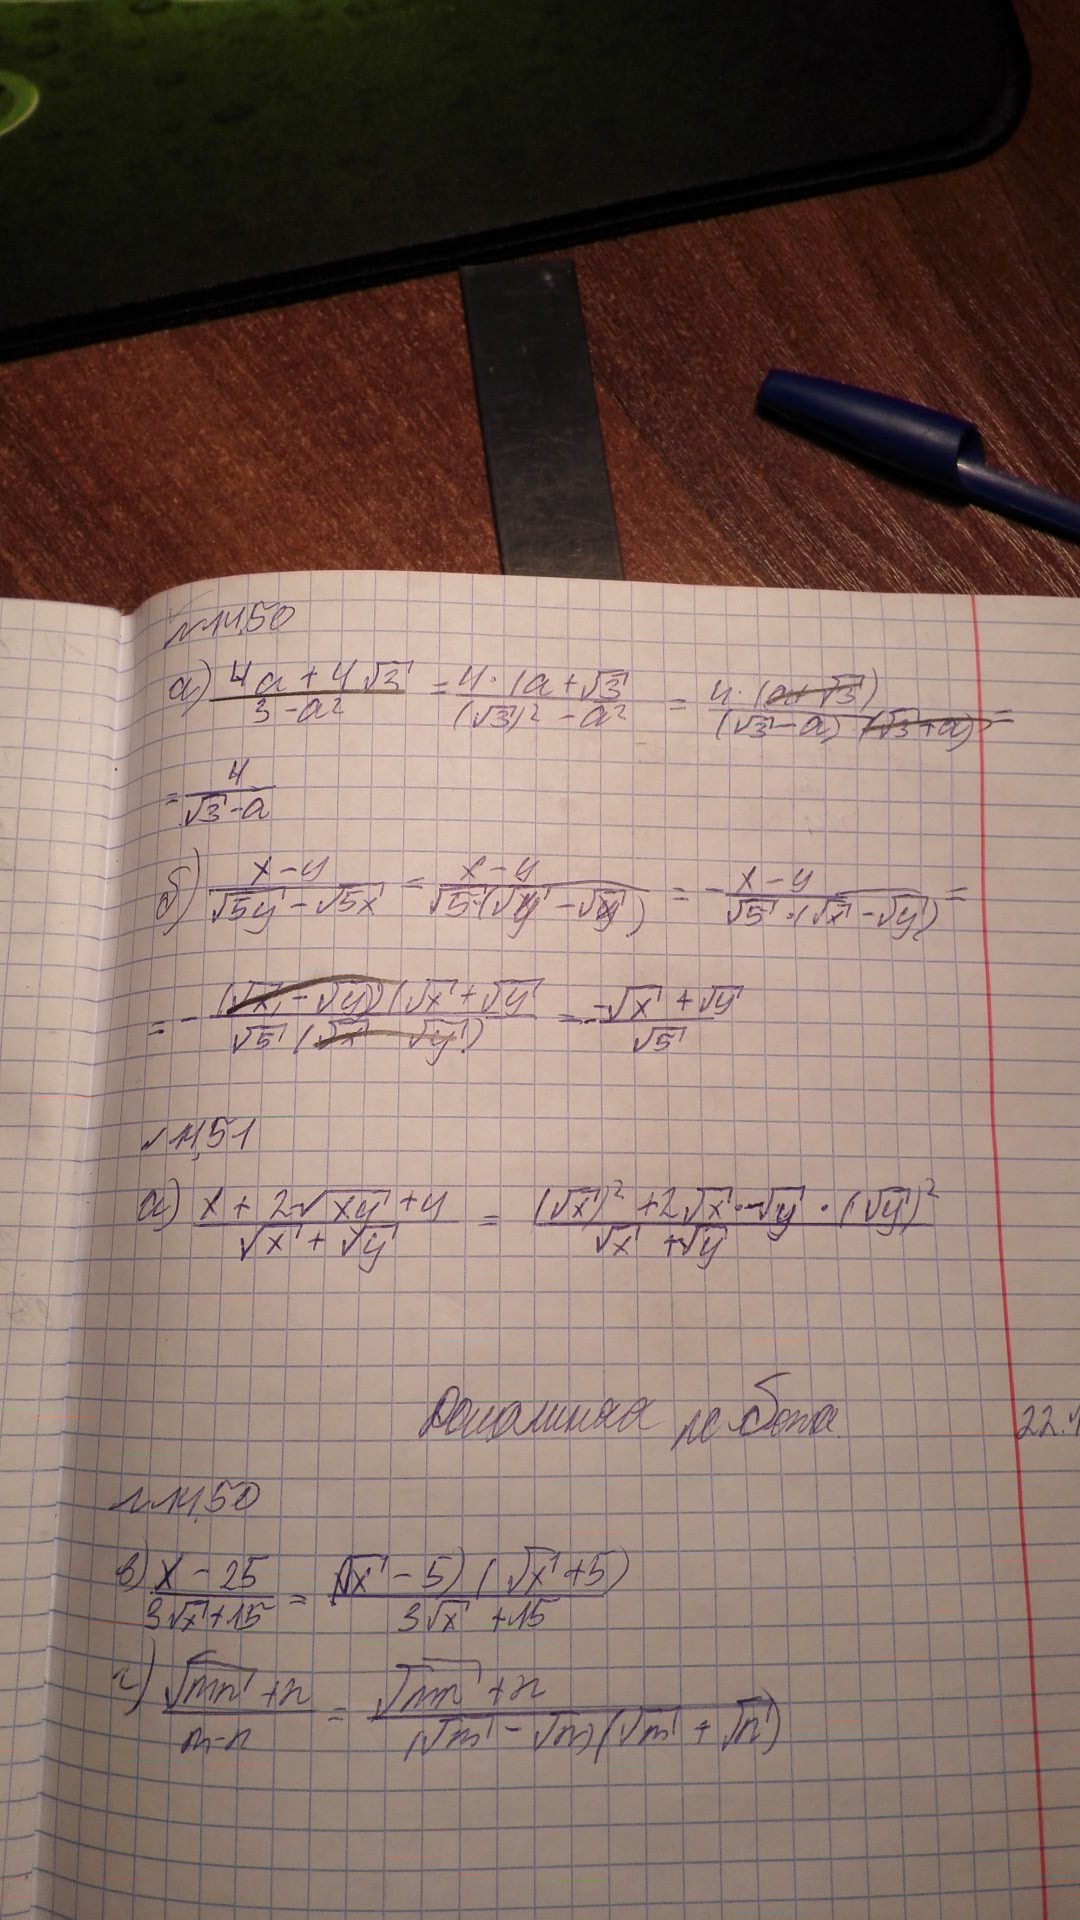 №14,50
а) (4a + 4√3)/(3 - a²) = (4 · (a + √3)/((√3)² - a²) = (4 · (a + √3))/((√3 - a) (√3 + a)) =
= 4/(√3 - a)
б) (x - y)/(√5y - √5x) = (x - y)/(√5 · (√y - √x)) = - (x - y)/(√5 · (√x - √y)) =
= - ((√x - √y)(√x + √y)/(√5 (√x - √y)) = (-√x + √y)/√5
№14,51
а) (x + 2√xy + y)/(√x + √y) = ((√x)² + 2√x · √y · (√y)²)/(√x + √y)
Домашняя работа 22.
№14,50
в) (x - 25)/(3√x + 15) = ((√x - 5) (√x + 5))/(3√x + 15)
г) (√mn + n)/(m - n) = (√mn + n)/((√m - √n)(√m + √n))